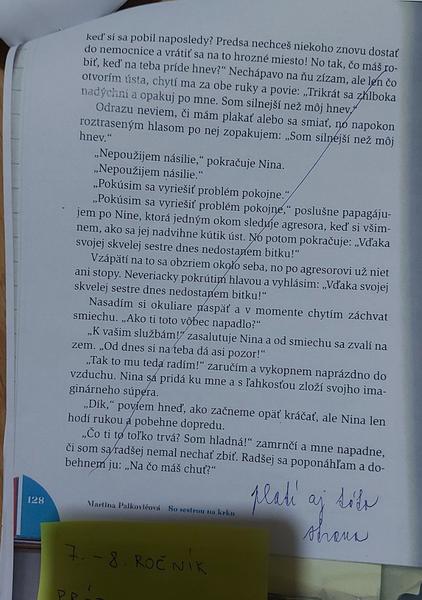 keď si sa pobil naposledy? Predsa nechceš niekoho znovu dostať
do nemocnice a vrátiť sa na to hrozné miesto! No tak, čo máš ro-
biť, keď na teba príde hnev?“ Nechápavo na ňu zízam, ale len čo
otvorím ústa, chytí ma za obe ruky a povie: „Trikrát sa zhlboka
nadýchni a opakuj po mne. Som silnejší než môj hnev.“
Odrazu neviem, či mám plakať alebo sa smiať, no napokon
roztraseným hlasom po nej zopakujem: „Som silnejší než môj
hnev.“
„Nepoužijem násilie,“ pokračuje Nina.
„Nepoužijem násilie.“
„Pokúsim sa vyriešiť problém pokojne.“
„Pokúsim sa vyriešiť problém pokojne,“ poslušne papagáju-
jem po Nine, ktorá jedným okom sleduje agresora, keď si všim-
nem, ako sa jej nadvihne kútik úst. No potom pokračuje: „Vďaka
svojej skvelej sestre dnes nedostanem bitku!“
Vzápätí na to sa obzriem okolo seba, no po agresorovi už niet
ani stopy. Neveriacky pokrútim hlavou a vyhlásim: „Vďaka svojej
skvelej sestre dnes nedostanem bitku!“
Nasadím si okuliare naspäť a v momente chytím záchvat
smiechu. „Ako ti toto vôbec napadlo?“
„K vašim službám!“ zasalutuje Nina a od smiechu sa zvalí na
zem. „Od dnes si na teba dá asi pozor!“
„Tak to mu teda radím!“ zaručím a vykopnem naprázdno do
vzduchu. Nina sa pridá ku mne a s ľahkosťou zloží svojho ima-
ginárneho súpera.
„Dík,“ poviem hneď, ako začneme opäť kráčať, ale Nina len
hodí rukou a pobehne dopredu.
„Čo ti to toľko trvá? Som hladná!“ zamrnčí a mne napadne,
či som sa radšej nemal nechať zbiť. Radšej sa poponáhľam a do-
behnem ju: „Na čo máš chuť?“
128
Martina Palkovičová So sestrou na krku
platí aj táto
strana
7. – 8. ROČNÍK